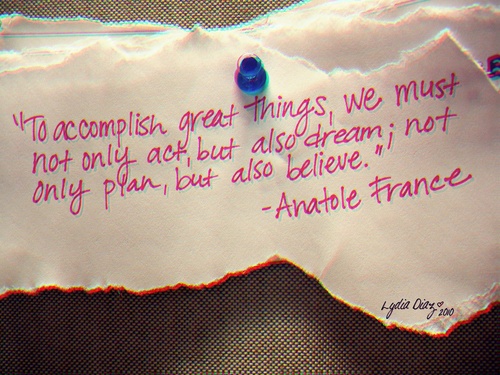 "To accomplish great things, we must
not only act, but also dream; not
only plan, but also believe."
-Anatole France
Lydia Diaz ♥
2010